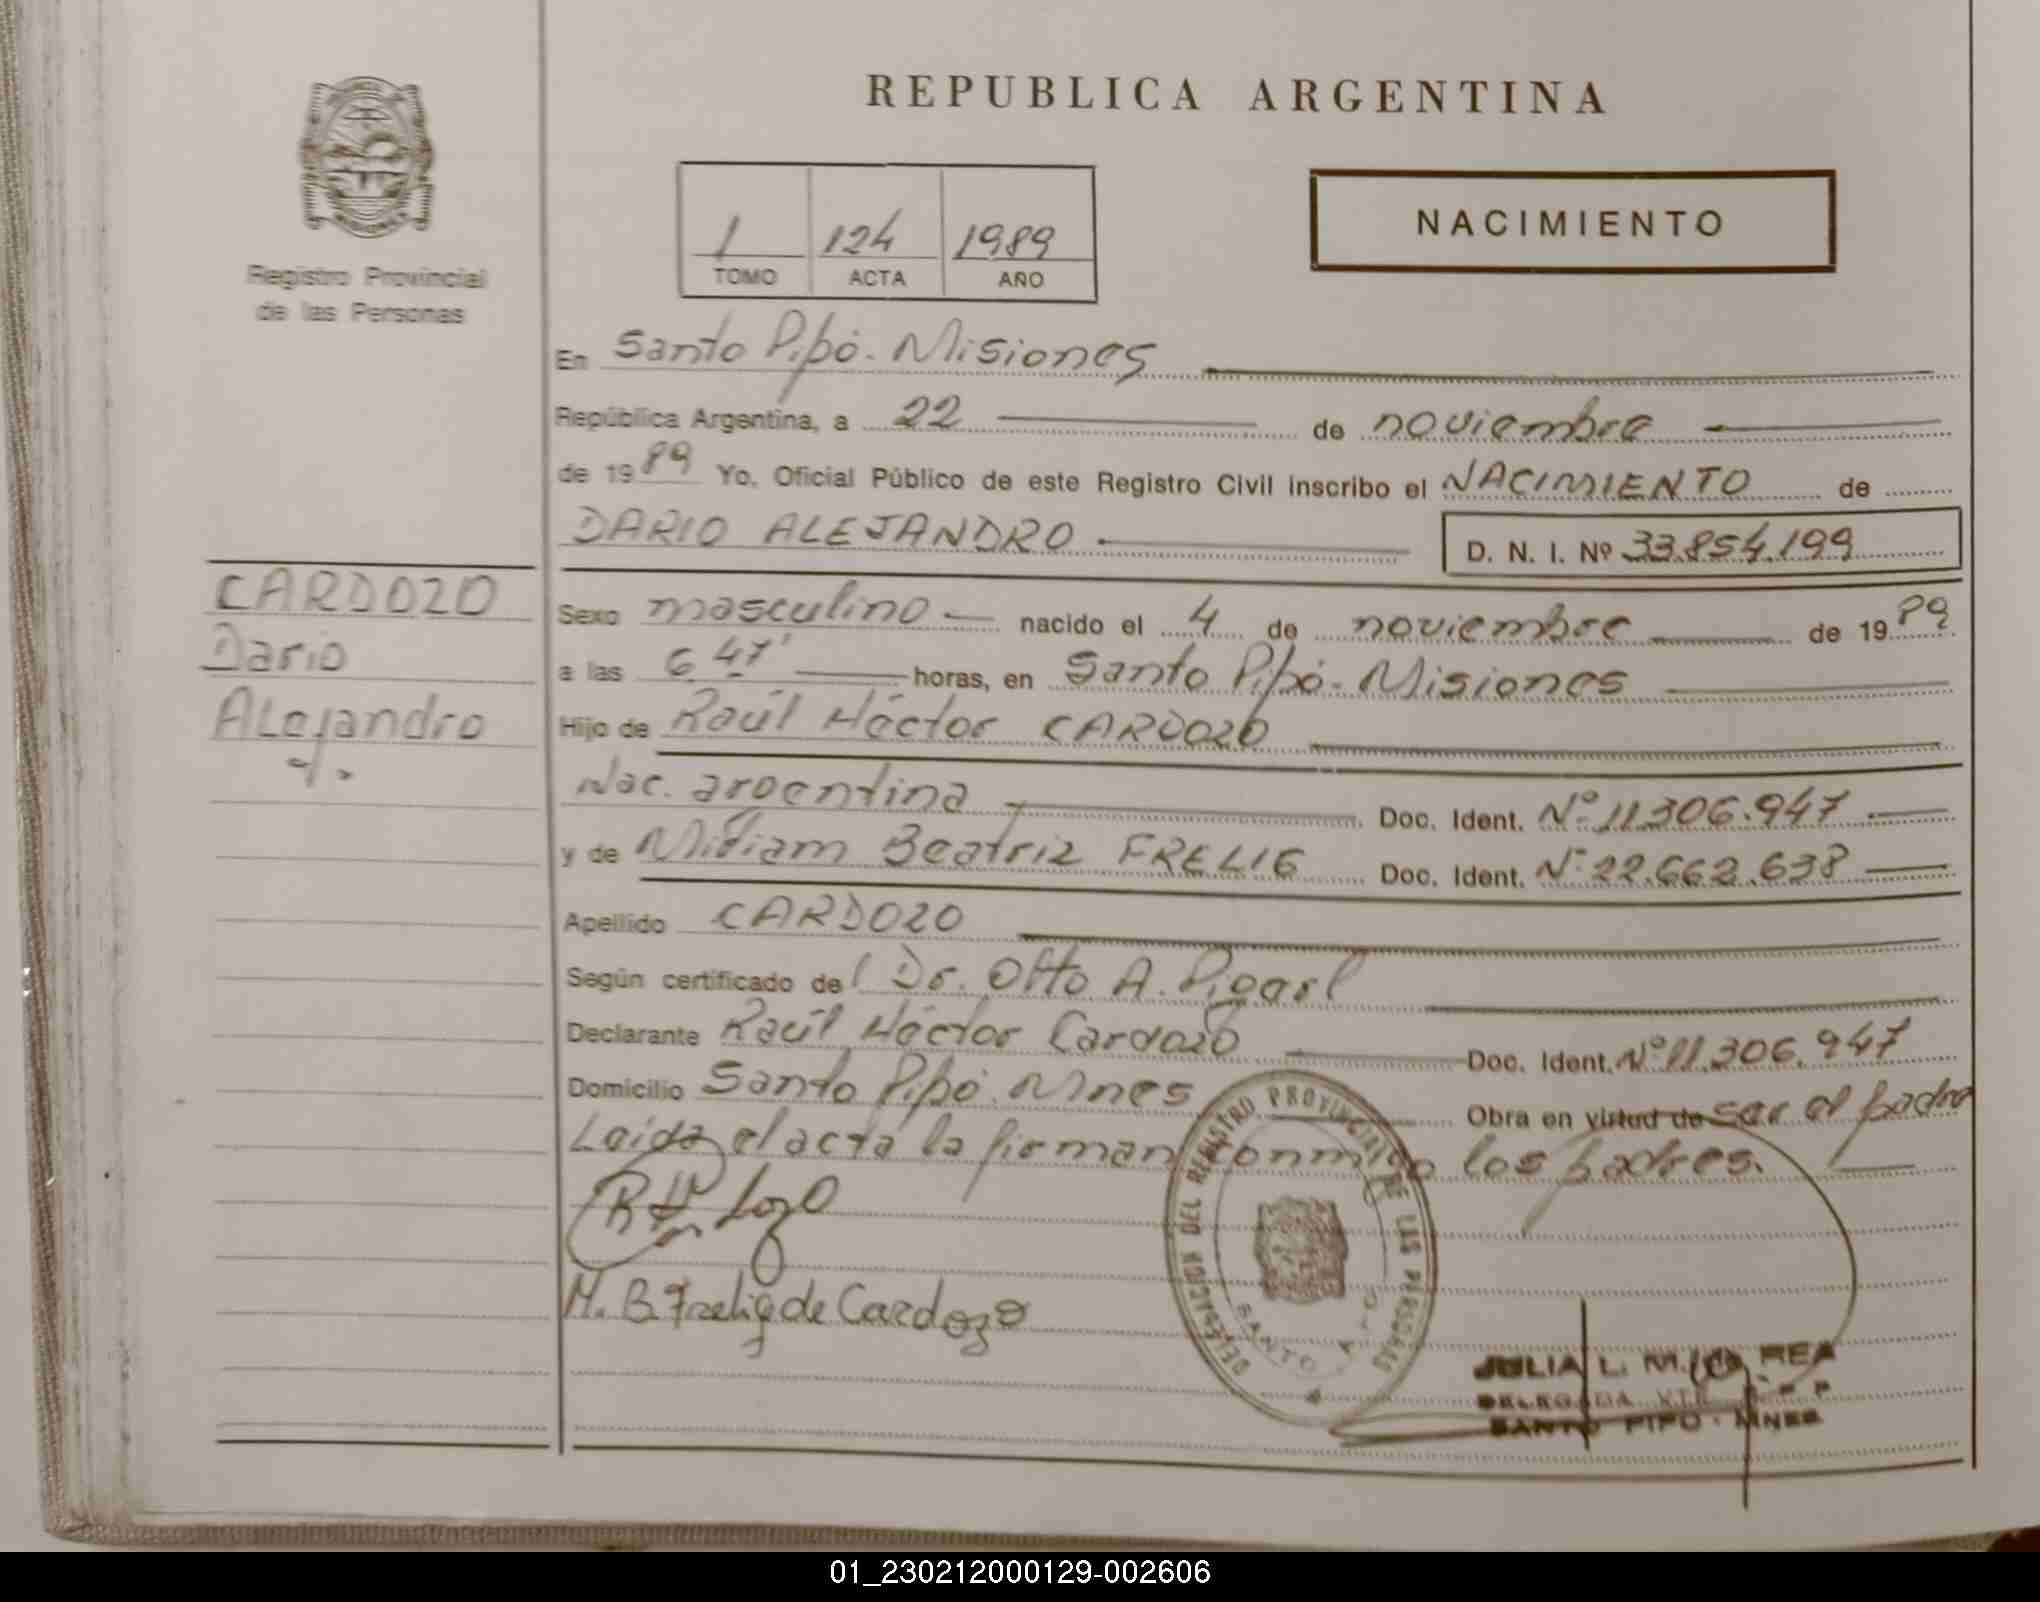 REPUBLICA ARGENTINA
Registro Provincial
de las Personas
1 124 1989
TOMO ACTA AÑO
NACIMIENTO
En Santo Pipó. Misiones
República Argentina, a 22 de noviembre
de 1989 Yo, Oficial Público de este Registro Civil inscribo el NACIMIENTO de
DARIO ALEJANDRO D. N. I. Nº 33.854.199
CARDOZO
Dario
Alejandro
Sexo masculino nacido el 4 de noviembre de 1989
a las 6.47' horas, en Santo Pipó. Misiones
Hijo de Raúl Héctor CARDOZO
Nac. argentina Doc. Ident. Nº 11.306.947
y de Miriam Beatriz FRELIG Doc. Ident. Nº 22.662.638
Apellido CARDOZO
Según certificado del Dr. Otto A.
Declarante Raúl Héctor Cardozo Doc. Ident. Nº 11.306.947
Domicilio Santo Pipó. Mnes Obra en virtud de ser el padre
Leida el acta la firman conmigo los padres.
M. B. Frelig de Cardozo
DELEGACION DEL REGISTRO PROVINCIAL DE LAS PERSONAS
SANTO
JULIA L. M. REA
DELEGADA
SANTO PIPO - MNES
01_230212000129-002606